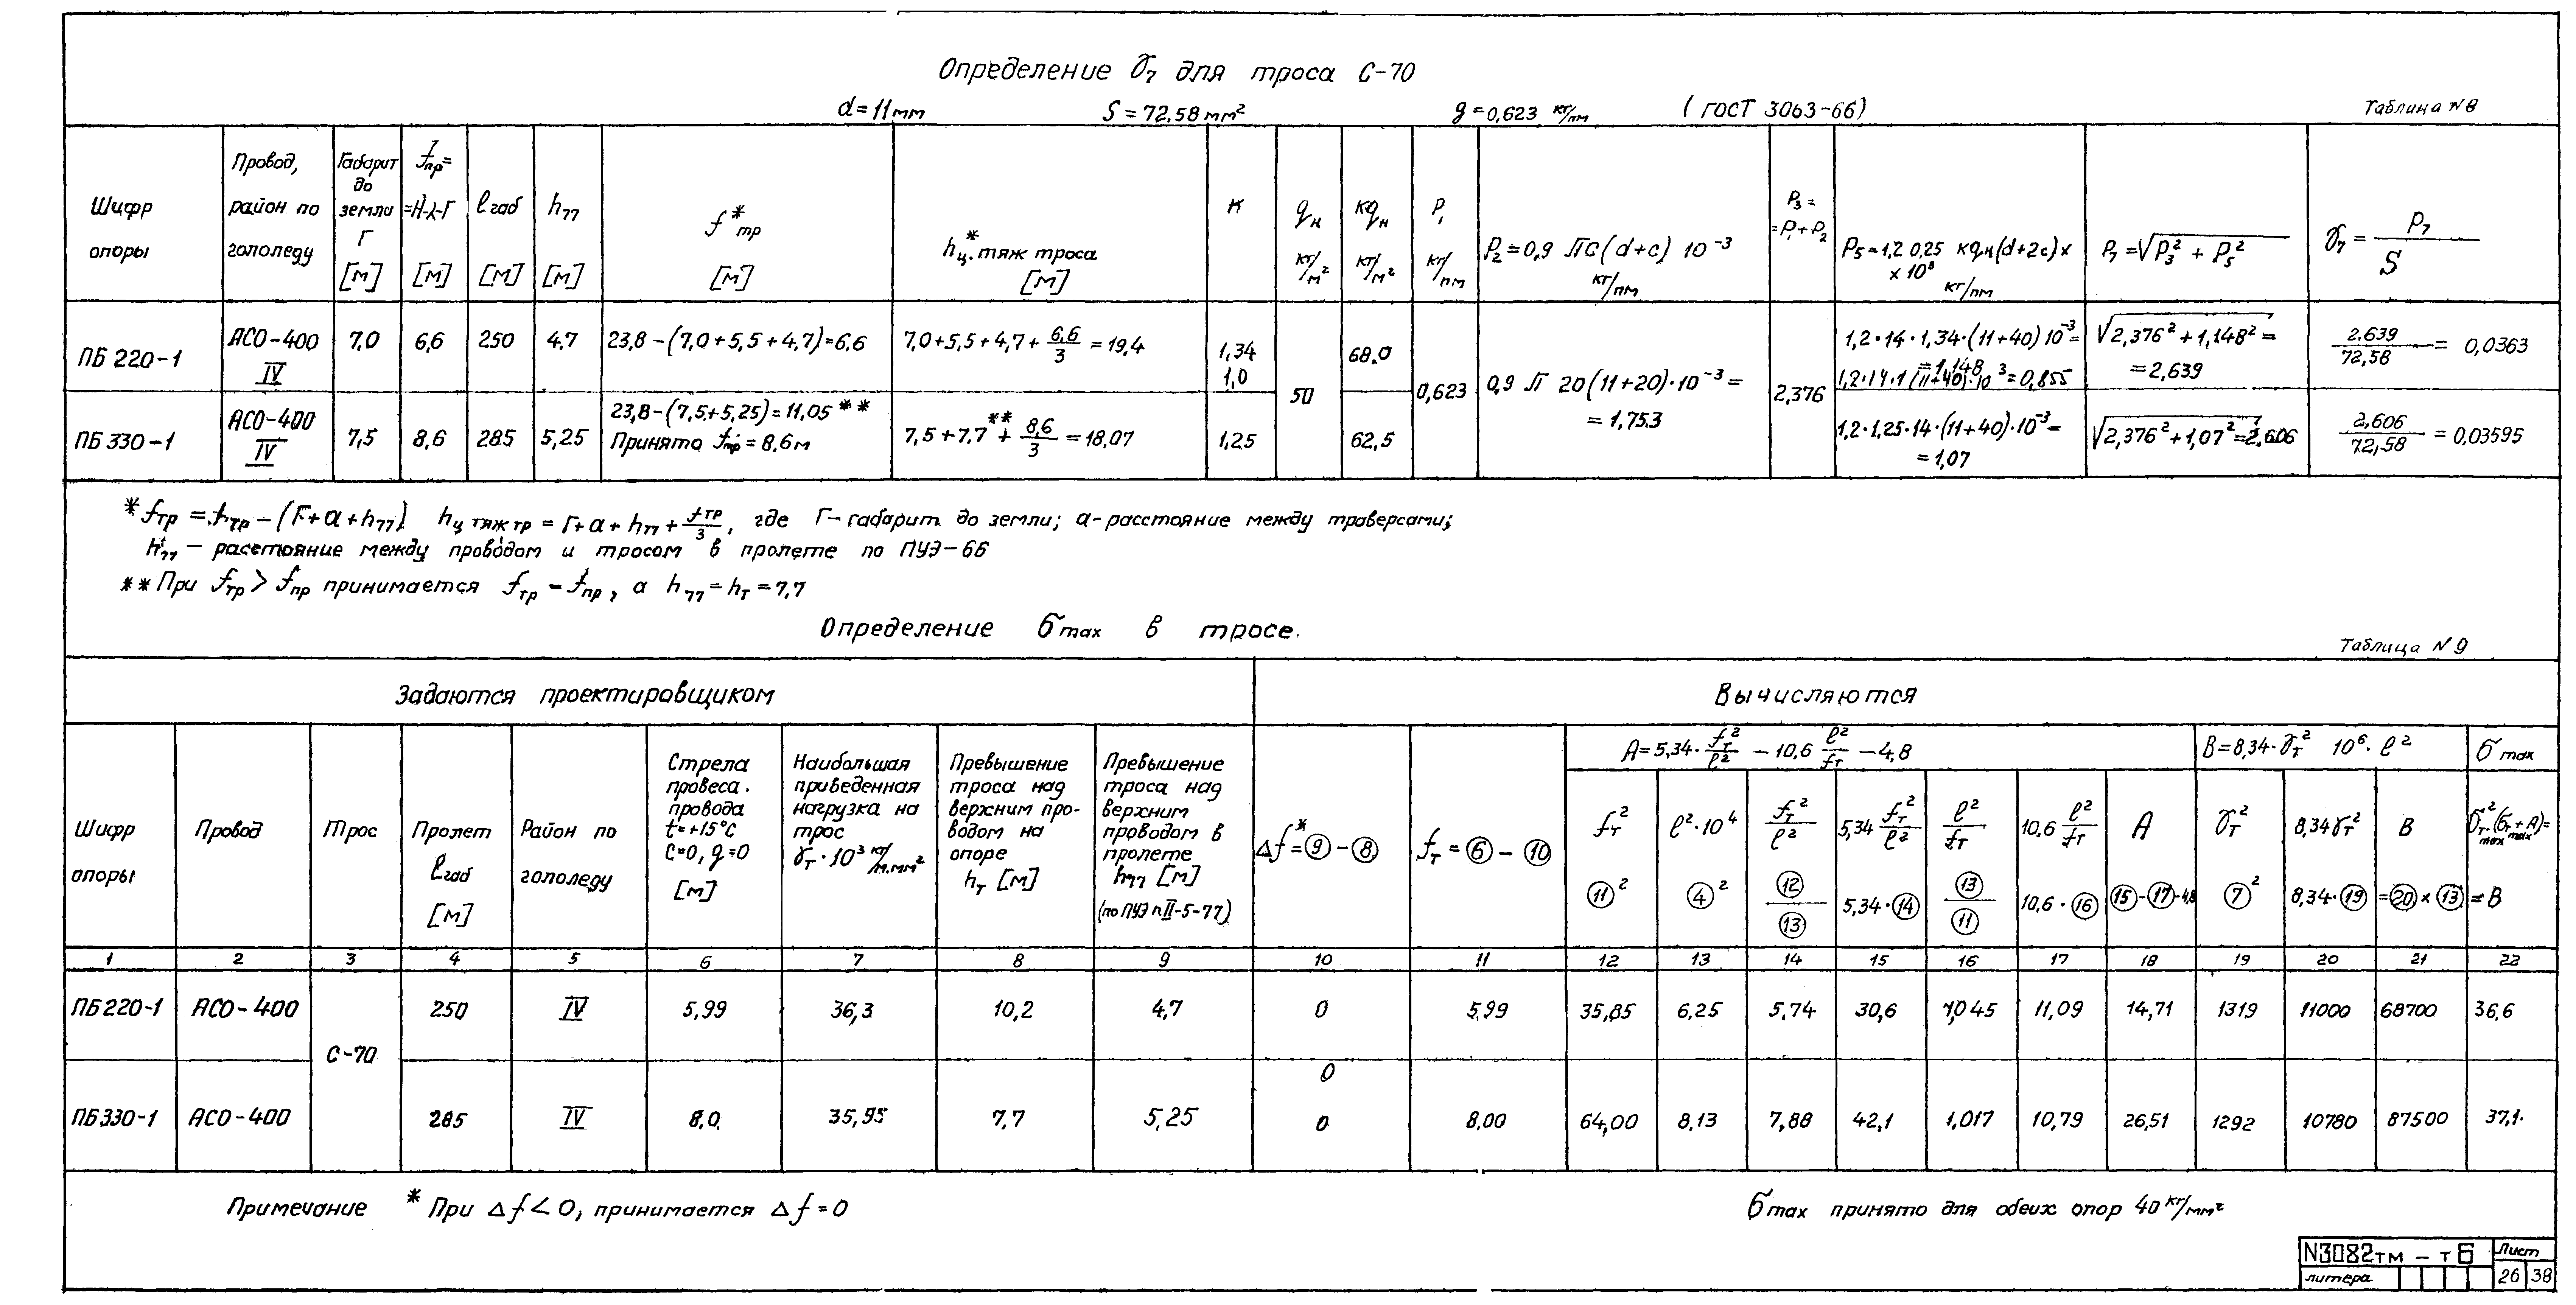 Определение γ₇ для троса С-70
d=11мм S=72,58 мм² g=0,623 кг/пм (ГОСТ 3063-66) Таблица N8
Шифр опоры
Провод, район по гололеду
Габарит до земли Г [м]
fпр= =H-λ-Г [м]
ℓгаб [м]
h₇₇ [м]
f*тр [м]
h*ц.тяж троса [м]
К
qн кг/м²
Кqн кг/м²
P₁ кг/пм
P₂=0,9 ПС(d+c) 10⁻³ кг/пм
P₃= =P₁+P₂
P₅=1,2 0,25 Кqн(d+2c)× ×10³ кг/пм
P₇=√P₃²+P₅²
γ₇= P₇/S
ПБ 220-1 АСО-400 IV 7,0 6,6 250 4,7 23,8-(7,0+5,5+4,7)=6,6 7,0+5,5+4,7+6,6/3=19,4 1,34 1,0 50 68.0 0,623 0,9 П 20(11+20)·10⁻³= =1,753 2,376 1,2·14·1,34·(11+40)10⁻³= =1,148 1,2·14·1(11+40)·10⁻³=0,855 √2,376²+1,148²= =2,639 2.639/72,58= 0,0363
ПБ 330-1 АСО-400 IV 7,5 8,6 285 5,25 23,8-(7,5+5,25)=11,05** Принято fпр=8,6м 7,5+7,7**+8,6/3=18,07 1,25 62,5 1,2·1,25·14·(11+40)·10⁻³= =1,07 √2,376²+1,07²=2,606 2,606/72,58=0,03595
* fтр=hтр-(Г+а+h₇₇) hц тяж тр=Г+а+h₇₇+fтр/3, где Г-габарит до земли; а-расстояние между траверсами;
h₇₇ - расстояние между проводом и тросом в пролете по ПУЭ-66
** При fтр>fпр принимается fтр-fпр, а h₇₇=hт=7,7
Определение σmax в тросе.
Таблица N9
Задаются проектировщиком Вычисляются
Шифр опоры
Провод
Трос
Пролет ℓгаб [м]
Район по гололеду
Стрела провеса. провода t=+15°С С=0, q=0 [м]
Наибольшая приведенная нагрузка на трос γт·10³ кг/м.мм²
Превышение троса над верхним проводом на опоре hт [м]
Превышение троса над верхним проводом в пролете h₇₇ [м] (по ПУЭ п II-5-77)
Δf*=⑨-⑧
fт=⑥-⑩
A=5,34·fт²/ℓ² -10,6 ℓ²/fт -4,8
B=8,34·γт² 10⁶·ℓ²
σmax
fт² ⑪²
ℓ²·10⁴ ④²
fт²/ℓ² ⑫/⑬
5,34 fт²/ℓ² 5,34·⑭
ℓ²/fт ⑬/⑪
10,6 ℓ²/fт 10,6·⑯
A ⑮-⑰-4,8
γт² ⑦²
8,34γт² 8,34·⑲
B =⑳×⑬
σт²max·(σтmax+A)= =B
1 2 3 4 5 6 7 8 9 10 11 12 13 14 15 16 17 18 19 20 21 22
ПБ220-1 АСО-400 С-70 250 IV 5,99 36,3 10,2 4,7 0 5,99 35,85 6,25 5,74 30,6 1,045 11,09 14,71 1319 11000 68700 36,6
0
ПБ330-1 АСО-400 285 IV 8,0 35,95 7,7 5,25 0 8,00 64,00 8,13 7,88 42,1 1,017 10,79 26,51 1292 10780 87500 37,1.
Примечание * При Δf<0, принимается Δf=0
σmax принято для обеих опор 40 кг/мм²
N3082тм - т Б Лист
литера 26 38